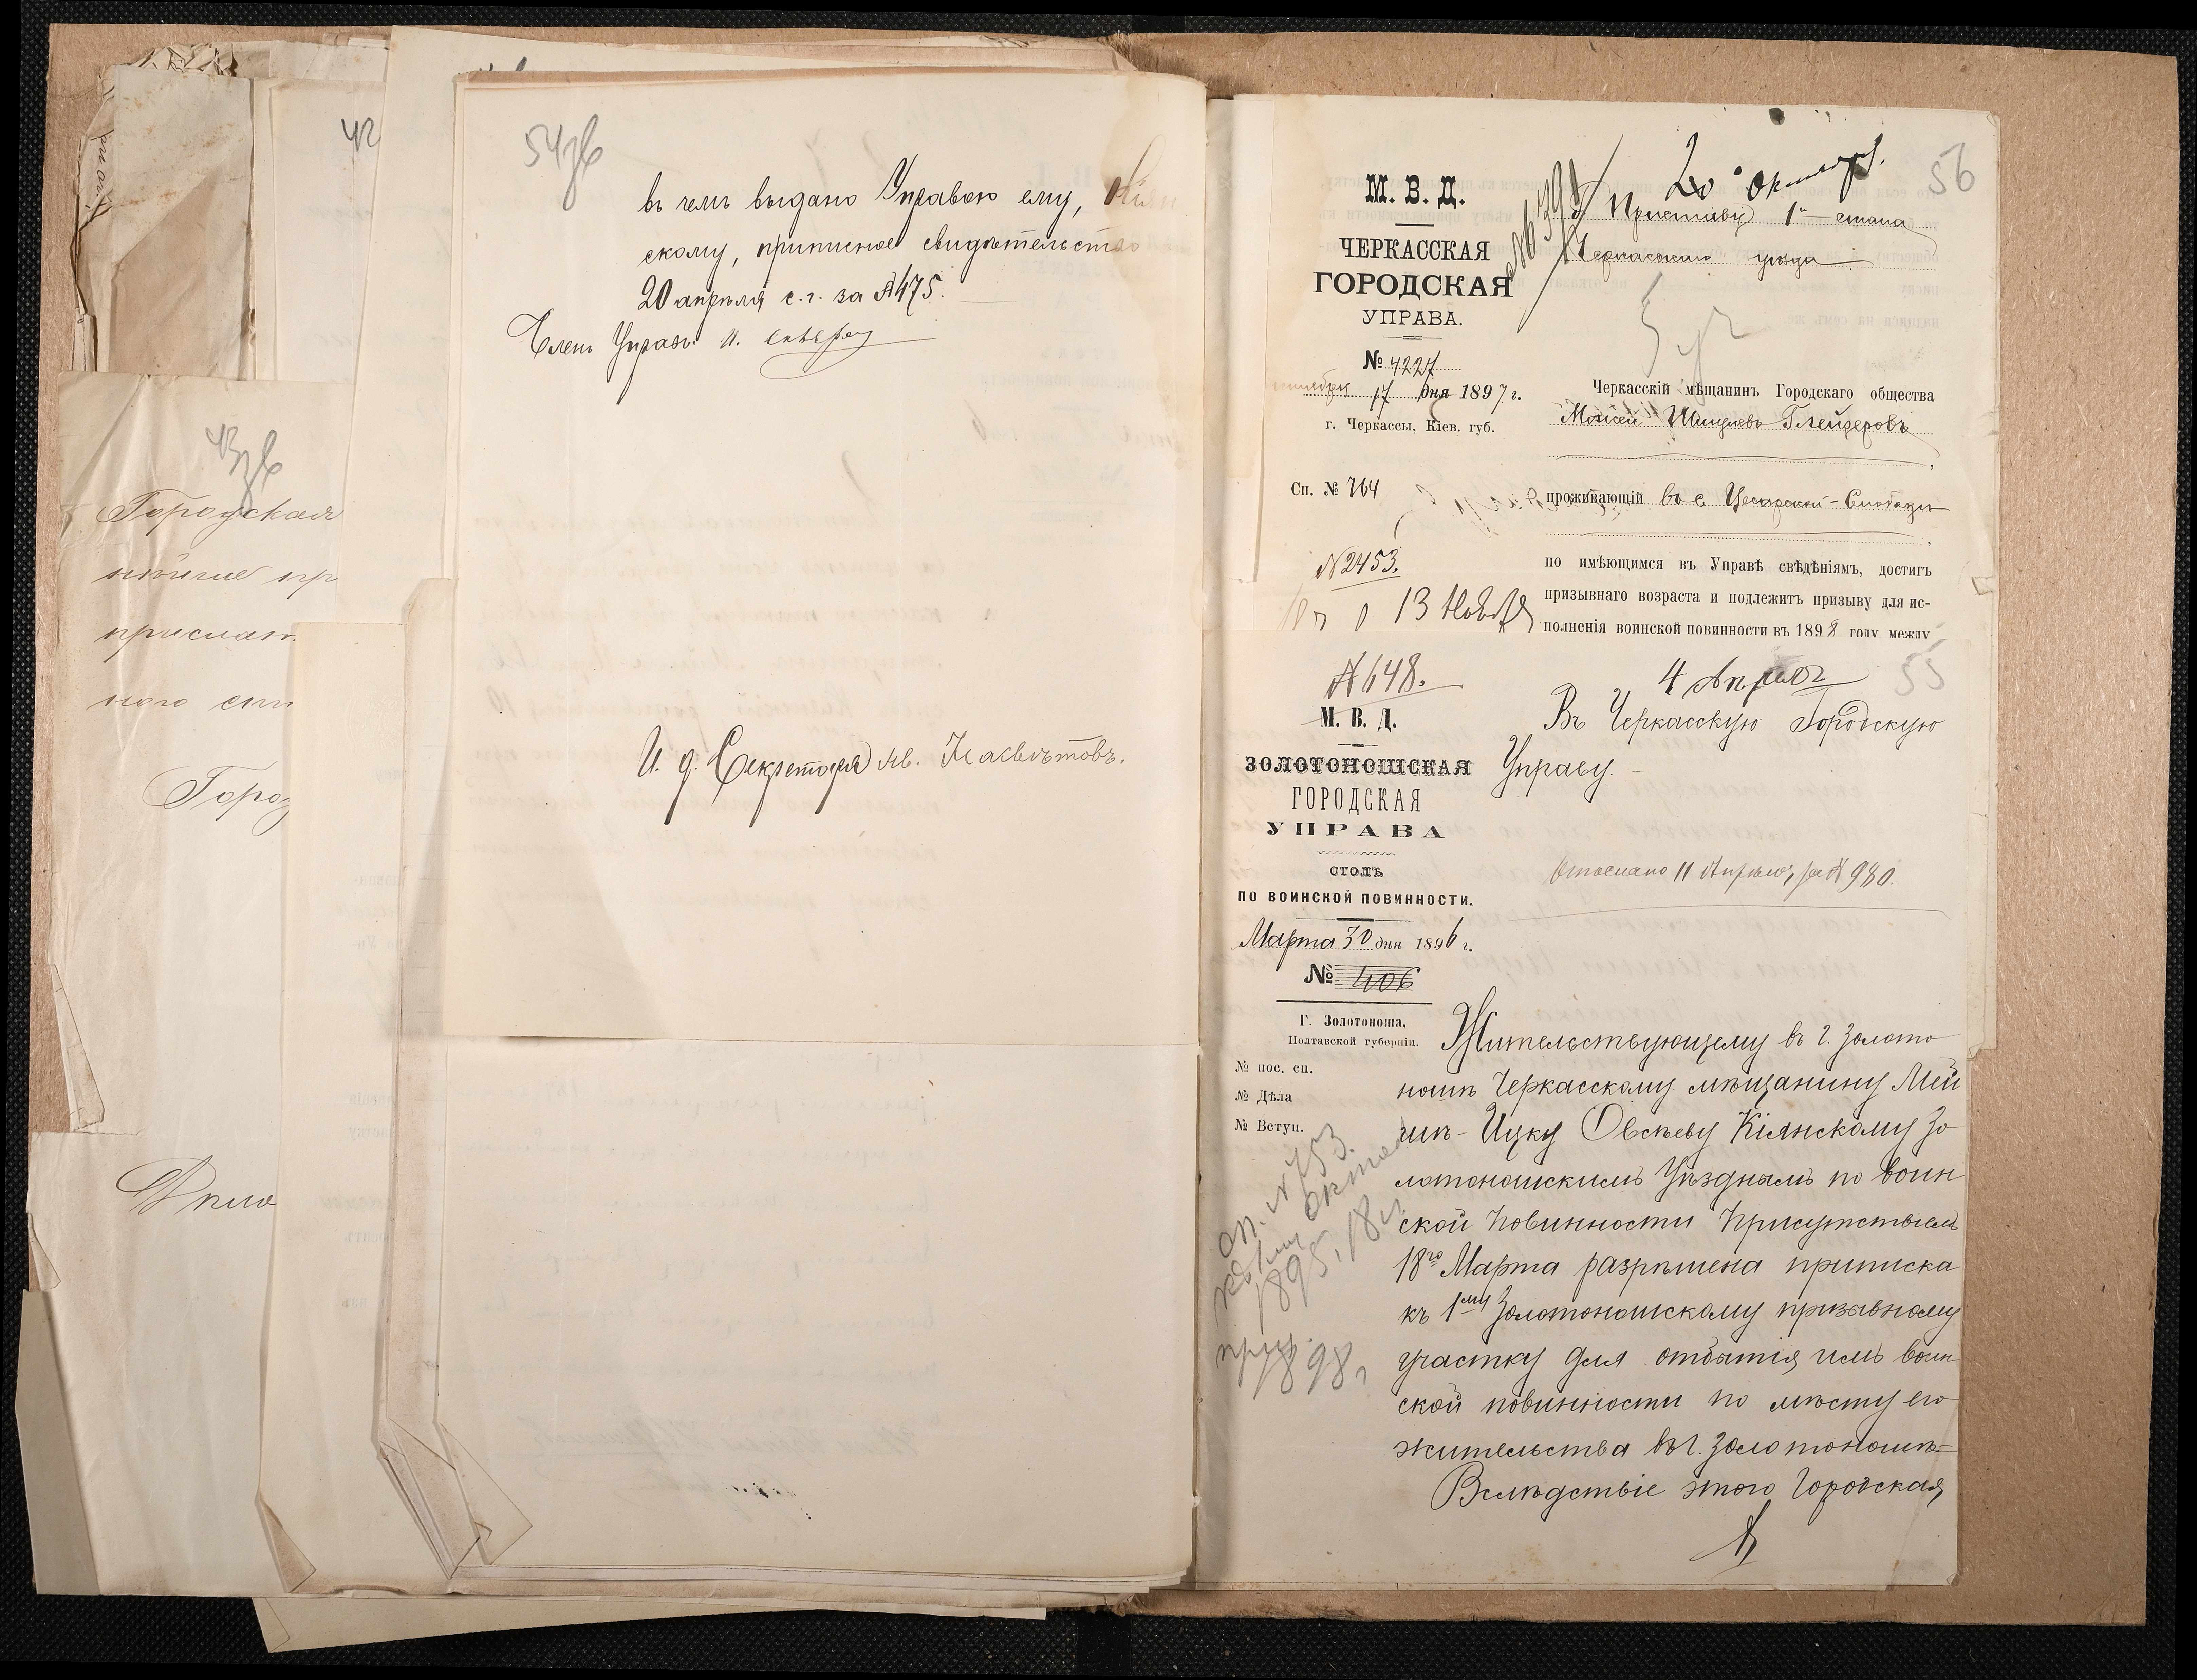 42
43зв
Городская
прислан
Горо
54зв
въ чемъ выдано Управою ему, Кіян
скому, приписное свидѣтельство
20 апрѣля с.г. за № 475.
Членъ Управы
И. д. Секретаря Ив. Насвѣтовъ.
56
20 Октября.
М. В. Д.
ЧЕРКАССКАЯ
ГОРОДСКАЯ
УПРАВА.
№ 4227
17 дня 1897 г.
г. Черкассы, Кіев. губ.
Сп. № 764
Приставу 1го стана
Черкасскаго уѣзда
Черкасскій мѣщанинъ Городскаго общества
Моисей Шмулевъ Глейзеровъ
проживающій въ с. Цесарской-Слободѣ
по имѣющимся въ Управѣ свѣдѣніямъ, достигъ
призывнаго возраста и подлежитъ призыву для ис-
полненія воинской повинности въ 1898 году между
№ 2453.
13 Ноября
55
№ 648.
4 Апрѣля
М. В. Д.
ЗОЛОТОНОШСКАЯ
ГОРОДСКАЯ
УПРАВА
СТОЛЪ
ПО ВОИНСКОЙ ПОВИННОСТИ.
Марта 30 дня 1896 г.
№ 406
Г. Золотоноша,
Полтавской губерніи.
№ пос. сп.
№ Дѣла
№ Вступ.
Въ Черкасскую Городскую
Управу.
Отослано 11 Апрѣля, за № 980.
Жительствующему въ г. Золото
ношѣ Черкасскому мѣщанину Мей
шѣ-Ицку Овсѣеву Кіянскому Зо
лотоношскимъ Уѣзднымъ по воин
ской повинности Присутствіемъ
18го Марта разрѣшена приписка
къ 1му Золотоношскому призывному
участку для отбытія имъ воин
ской повинности по мѣсту его
жительства въ г. Золотоношѣ=
Вслѣдствіе этого Городская
№ 753.
1895, 18
1898 г